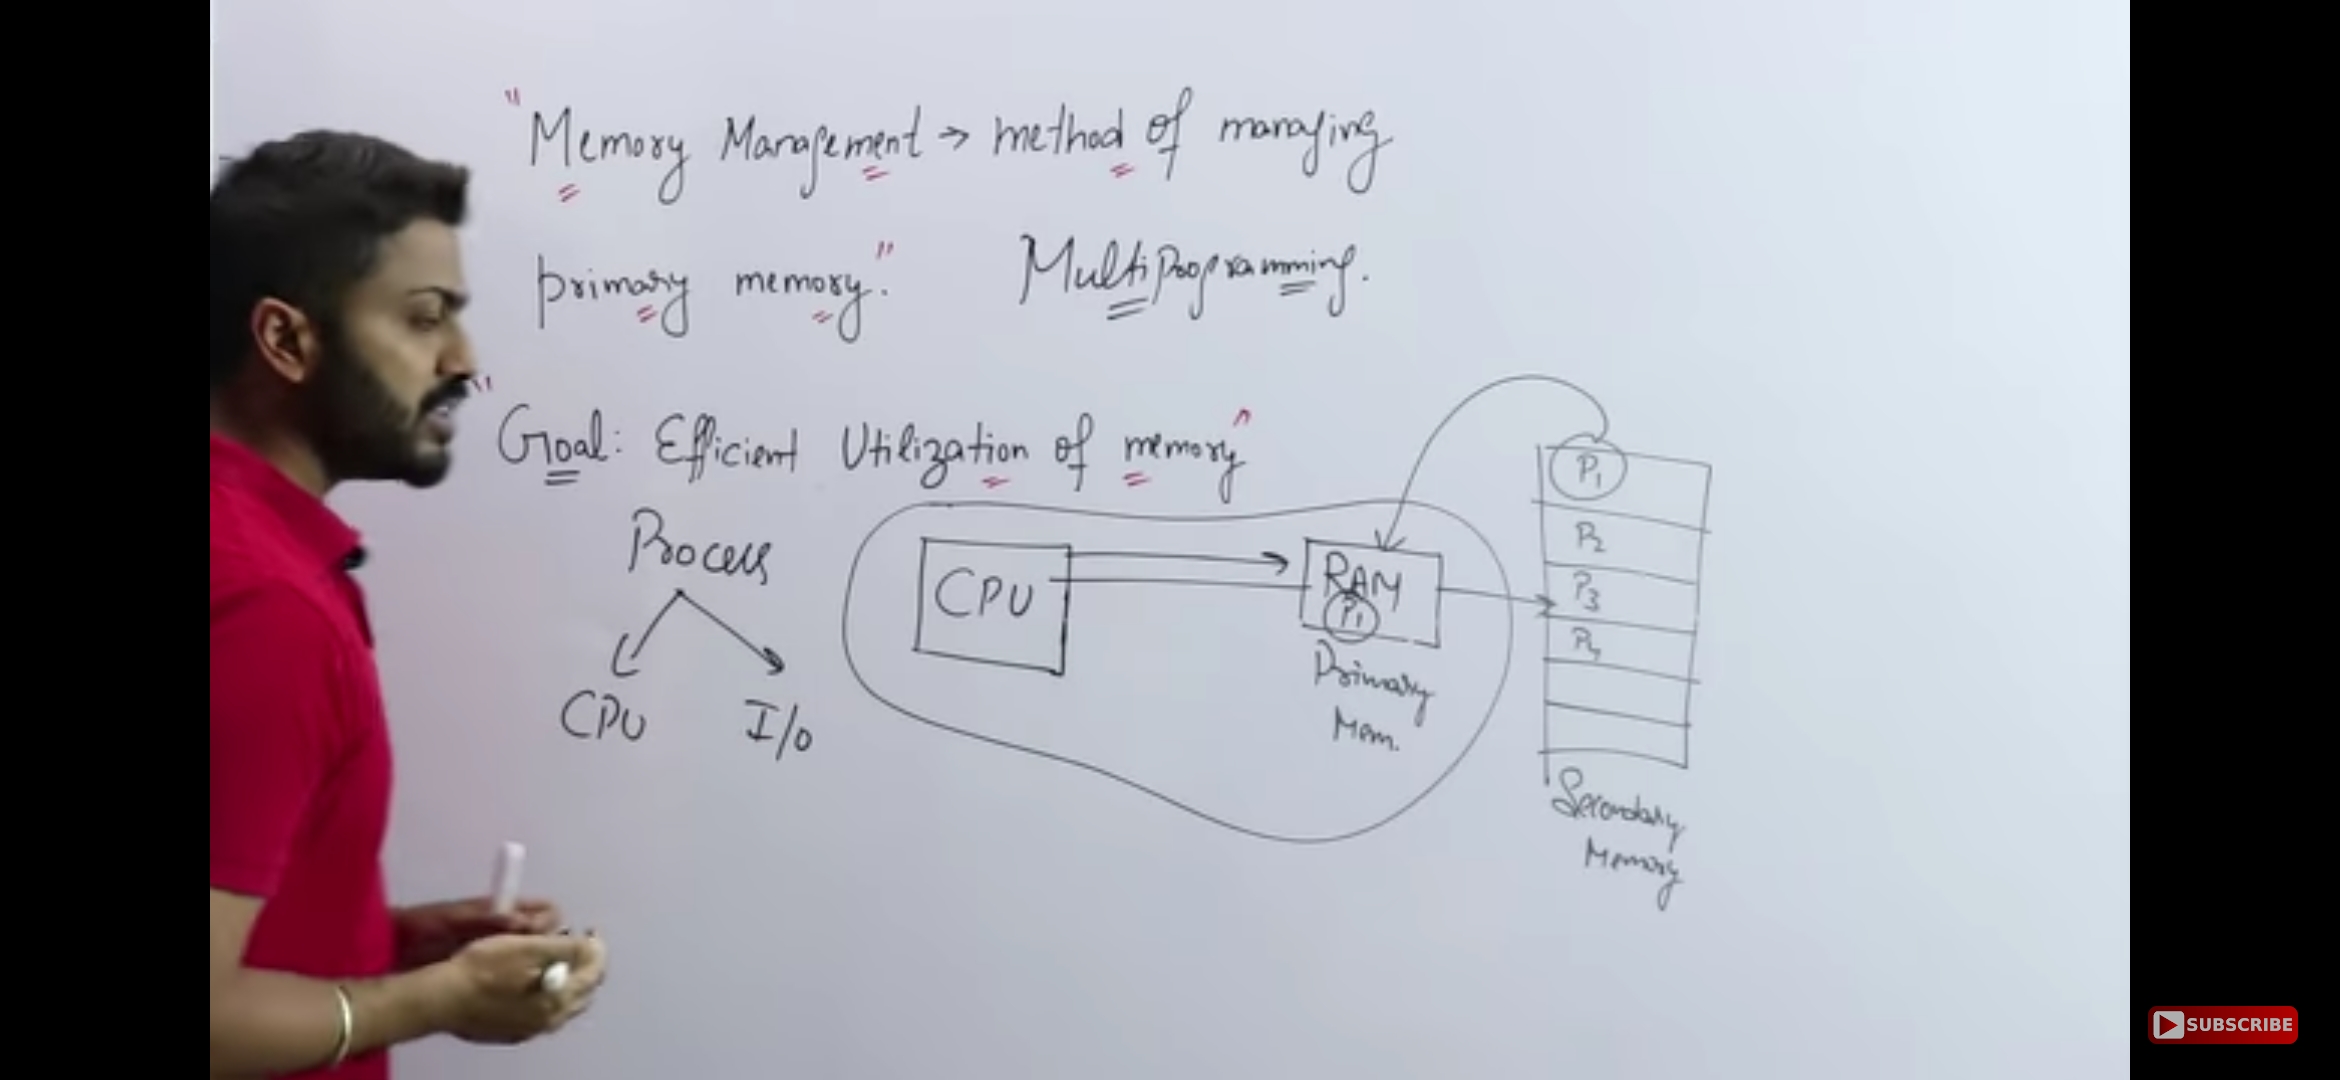 "Memory Management → method of managing
primary memory."
MultiProgramming.
"Goal: Efficient Utilization of memory"
Process
CPU I/O
CPU
RAM
P1
Primary
Mem.
P1
P2
P3
P4
Secondary
Memory
SUBSCRIBE